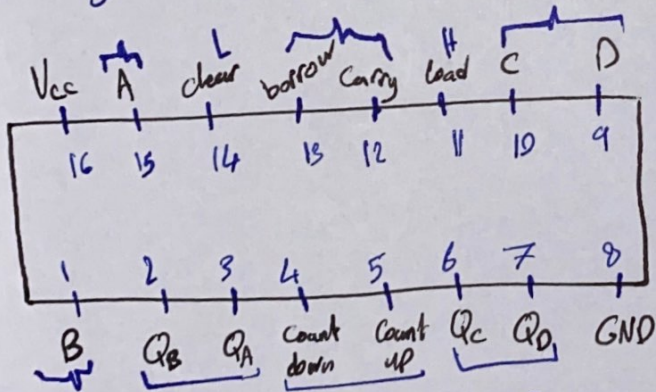 L H
Vcc A clear borrow Carry load C D
16 15 14 13 12 11 10 9
1 2 3 4 5 6 7 8
B QB QA Count down Count up QC QD GND